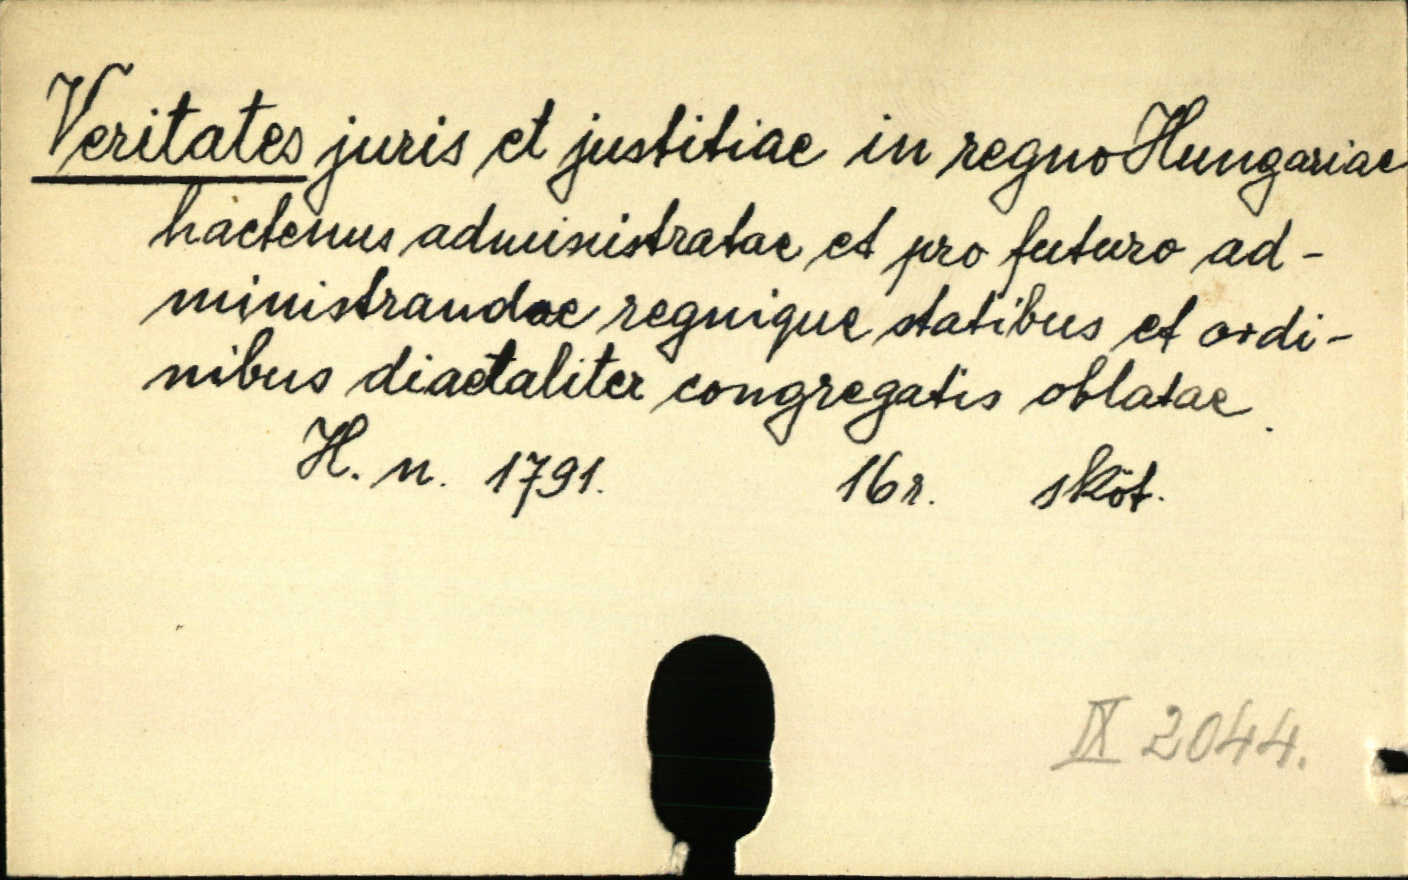 Veritates juris et justitiae in regno Hungariae
hactenus administratae et pro futuro ad-
ministrandae regnique statibus et ordi-
nibus diaetaliter congregatis oblatae.
H. n. 1791. 16r. sköt.
IX 2044.